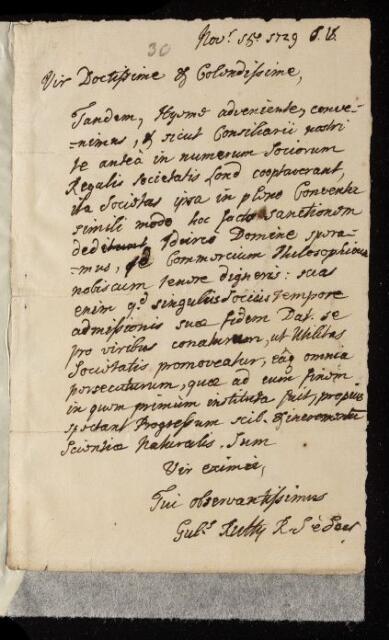 30
Nov.r 15.o 1729 S.V.
Vir Doctissime & Colendissime,
Tandem, Hyeme adveniente, conve-
-nimus, & sicut Consiliarii nostri
te anteà in numerum Sociorum
Regalis Societatis Lond cooptaverant,
ita Societas ipsa in pleno Conventu
simili modo hoc factum sanctionem
dedit. Idcirco Domine spera-
-mus, qd Commercium Philosophicum
nobiscum tenere digneris: scias
enim qd singulus Socius tempore
admissionis suæ fidem Dat. se
pro viribus conaturum, ut Utilitas
Societatis promoveatur, eaq omnia
persecuturum, quæ ad eum finem
in quem primum instituta fuit, propius
spectant Progressum scil. & incrementum
Scientiæ Naturalis. Sum
Vir eximie,
Tui observantissimus
Gul.s Rutty R.S. è Secr